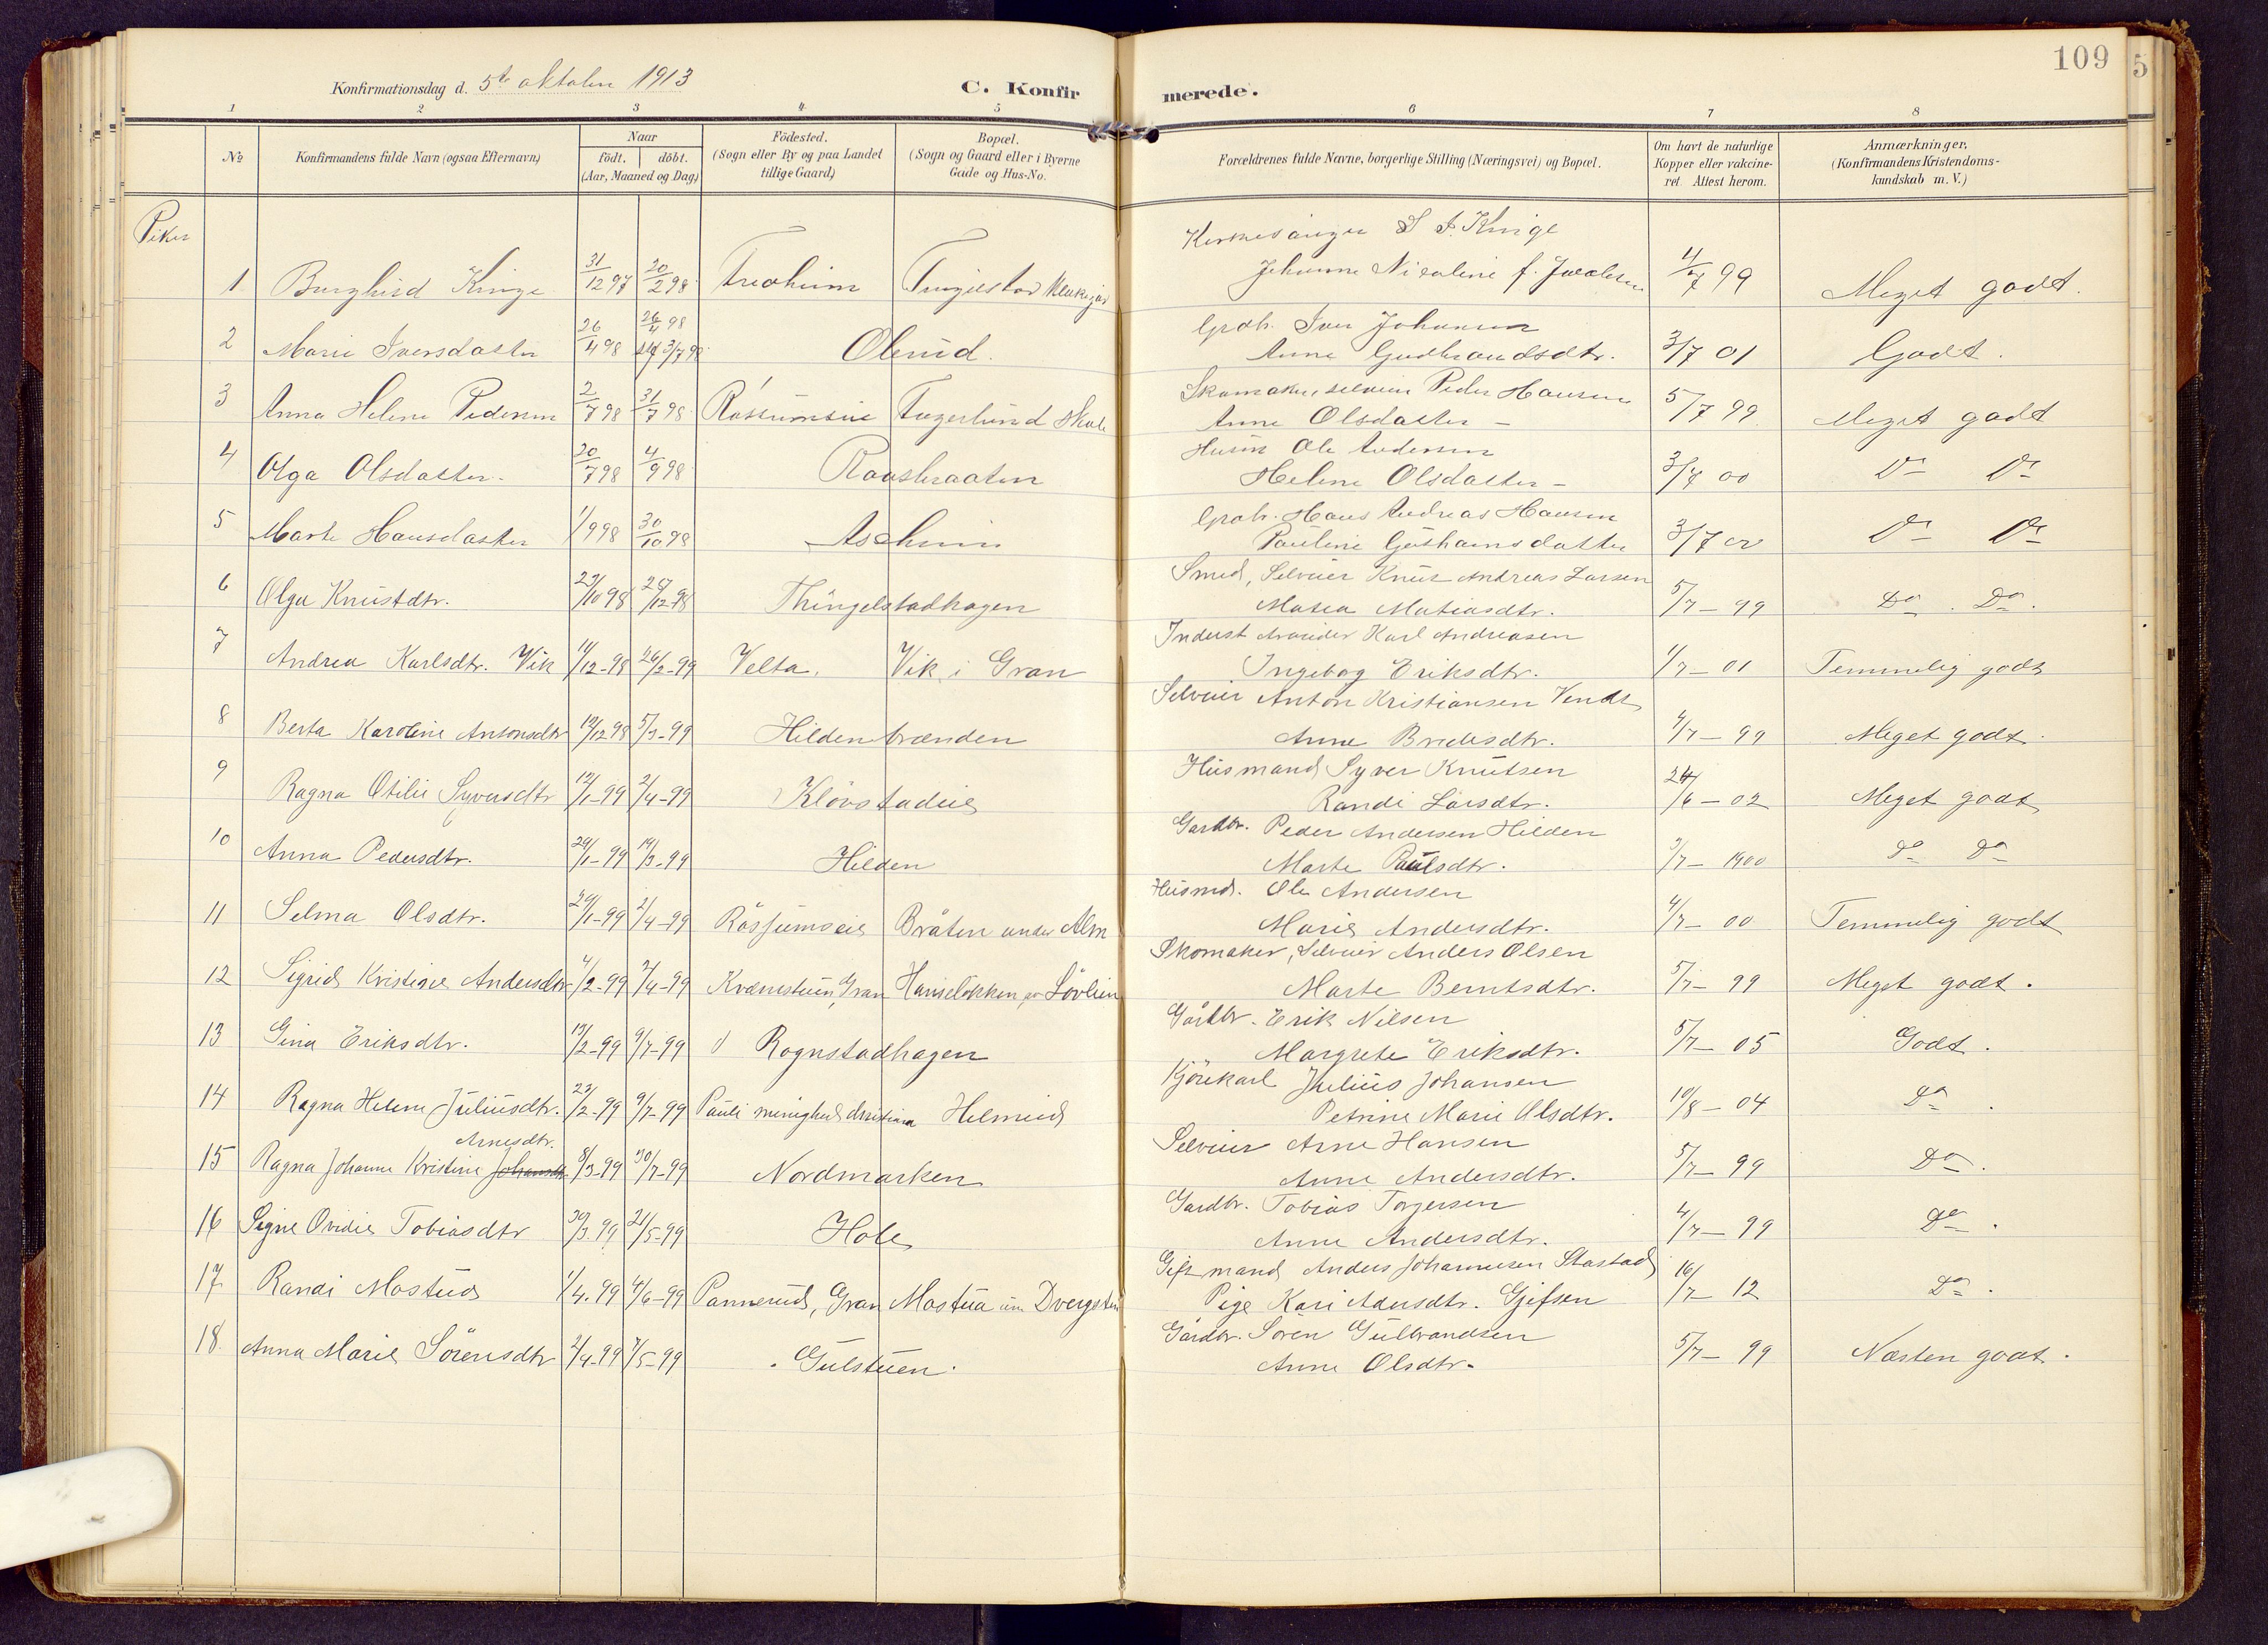 109
5
Konfirmationsdag d. 5te oktober 1913
C. Konfirmerede.
1 2 3 4 5 6 7 8
No
Konfirmandens fulde Navn (ogsaa Efternavn)
Naar
født. døbt.
(Aar, Maaned og Dag)
Födested.
(Sogn eller By og paa Landet
tillige Gaard)
Bopæl.
(Sogn og Gaard eller i Byerne
Gade og Hus-No.
Forældrenes fulde Navne, borgerlige Stilling (Næringsvei) og Bopæl.
Om havt de naturlige
Kopper eller vakcine-
ret. Attest herom.
Anmærkninger,
(Konfirmandens Kristendoms-
kundskab m. V.)
Piker
Kirkesanger
1 Borghild 31/12 97 20/2 98 Meget godt.
Johanne Nicoline f. Jacobsen 99
26/4 98
2 Marie Iversdatter 26/4 98 3/7 98 Olerud. Gbr. Iver Johansen
Anne Gudbrandsdtr. 3/7 01 Godt.
3 Anna Helene Pedersen 2/7 98 31/7 98 Fagerlund Skole Skomaker, selveier Peder Hansen
Anne Olsdatter – 5/7 99 Meget godt
4 Olga Olsdatter. 20/7 98 4/9 98 Husm Ole Andersen
Helene Olsdatter – 00 Do Do
5 Marte Hansdatter 1/9 98 30/10 98 Hans Andreas Hansen
Pauline 3/7 Do Do
6 Olga Knustdtr. 23/10 98 12-98 Thingelstadhagen Smed, Selveier Knut Andreas Larsen
Matiasdtr. 5/7 – 99 Do. Do.
7 Andrea Karlsdtr. Vik 12-98 26/2-99 Velta. Vik i Gran Karl Andreasen
Ingebog Eriksdtr. 01 Temmelig godt
8 Berta Karoline Antonsdtr 12 98 5/3-99 Hildenbrænden Selveier Anton Kristiansen
Anne 4/7 – 99 Meget godt.
9 Ragna Otilie Syversdtr 12/1-99 2/4-99 Klövstadeie Husmand Syver Knutsen
Randi Larsdtr. 6 – 02 Meget godt
10 Anna Pedersdtr. 29/1-99 19/3-99 Hilden Gardbr. Peder Andersen Hilden
Marte Paulsdtr. 3/7 – 1900 Do Do
11 Selma Olsdtr. 29/1-99 2/4-99 Rössumseie Bråten under Alm Husmd. Ole Andersen
Marie Andersdtr. 4/7 – 00 Temmelig godt
12 Sigrid Kristine Andersdtr 4/2-99 2/4-99 Gran Skomaker, Selveier Anders Olsen
Marte Berntsdtr. 5/7 – 99 Meget godt.
13 Gina Eriksdtr. 19/2-99 9/7-99 Rognstadhagen Gårdbr. Erik Nilsen
Margrete Eriksdtr. 5/7 – 05 Godt.
14 Ragna Helene Juliusdtr. 23/2-99 9/7-99 Pauli menighed Kristiania Helmeid Kjörekarl Julius Johansen
Petrine Marie Olsdtr. 10/8 – 04 Do.
Arnesdtr.
15 Ragna Johanne Kristine Johansdtr 8/3-99 30/7-99 Nordmarken Selveier Arne Hansen
Anne Andersdtr. 5/7 – 99 Do.
16 Signe Ovidie Tobiasdtr 30/3-99 21/5-99 Hole Gardbr. Tobias Torgersen
Anne Andersdtr. 4/7 – 99 Do.
17 Randi Mostue 1/4. 99 4/6-99 Pannerud, Gran Mostua un Dvergsten Gift mand Anders Johannesen Stastad
Pige Kari Adersdtr. Gjefsen 16/7 12 Do.
18. Anna Marie Sörensdtr 2/4-99 7/5-99 Gulstuen. Gårdbr. Sören Gulbrandsen
Anne Olsdtr. 5/7 – 99 Næsten godt.